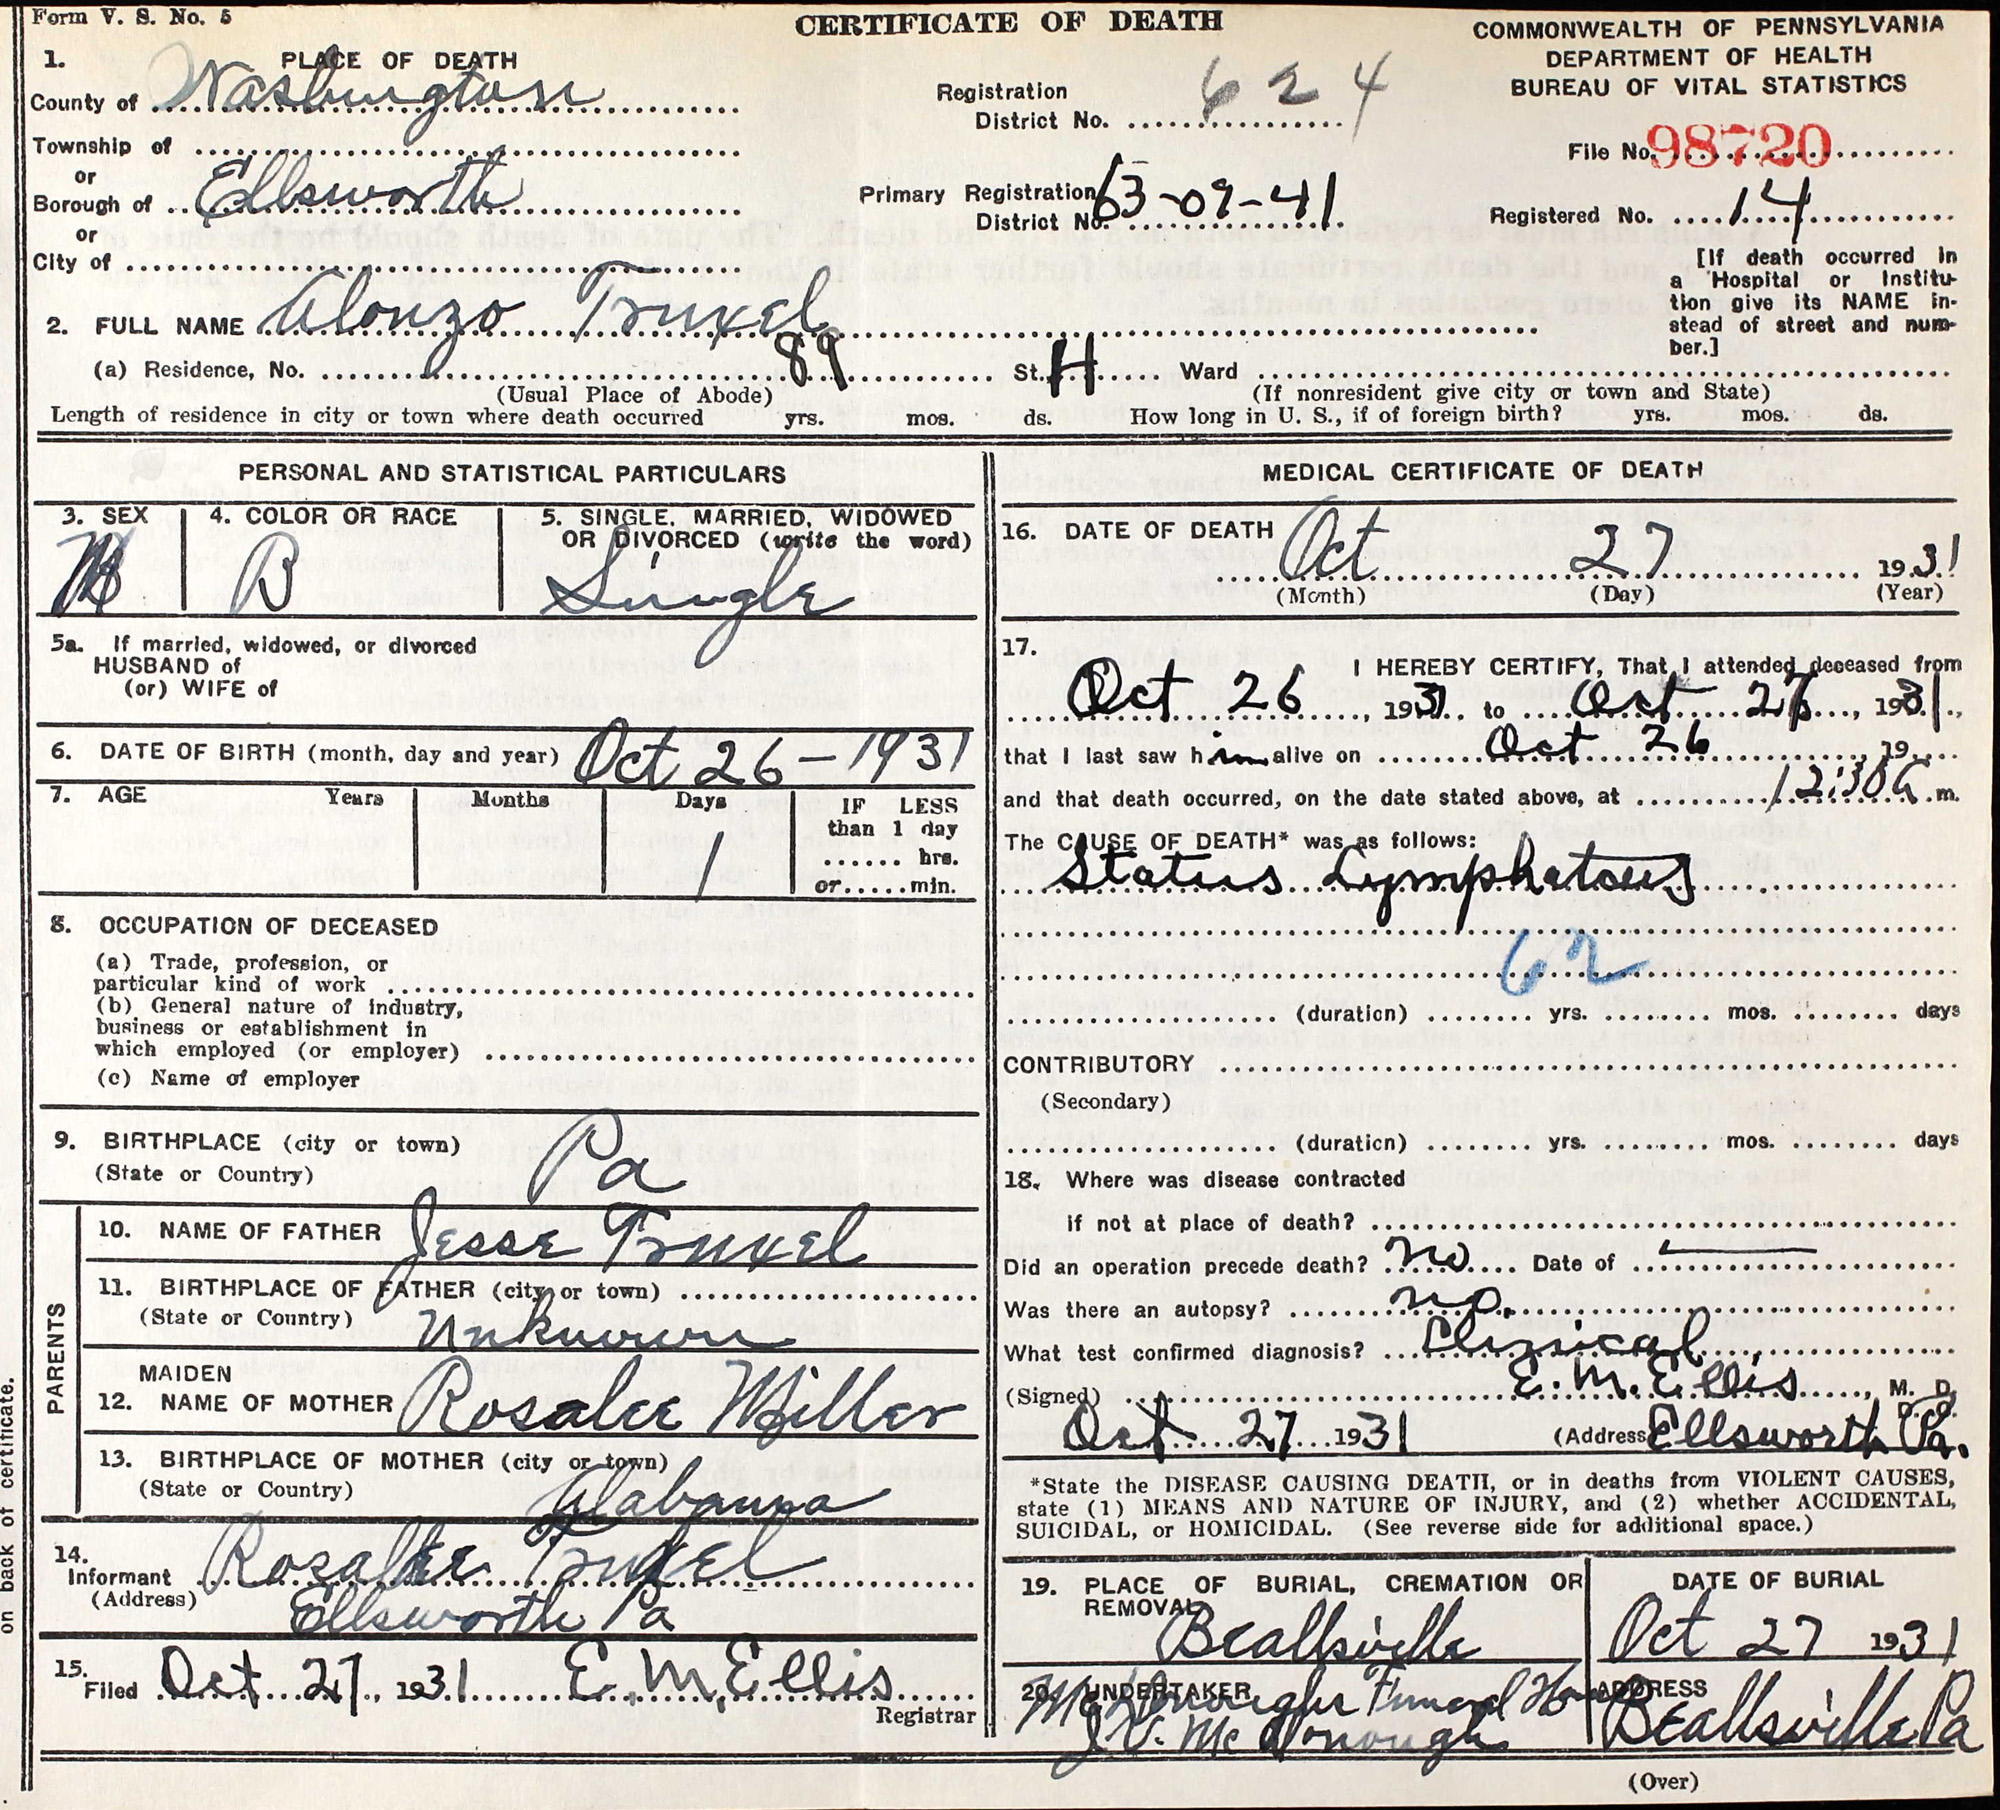 Form V. S. No. 5
CERTIFICATE OF DEATH
COMMONWEALTH OF PENNSYLVANIA
DEPARTMENT OF HEALTH
BUREAU OF VITAL STATISTICS
1. PLACE OF DEATH
County of Washington
Registration District No. 624
File No. 98720
Township of
or
Borough of Ellsworth
Primary Registration District No. 63-09-41
Registered No. 14
or
City of
[If death occurred in
a Hospital or Institu-
tion give its NAME in-
stead of street and num-
ber.]
2. FULL NAME Alonzo Truxel
(a) Residence, No. 89 St. H Ward
(Usual Place of Abode) (If nonresident give city or town and State)
Length of residence in city or town where death occurred yrs. mos. ds. How long in U. S., if of foreign birth? yrs. mos. ds.
PERSONAL AND STATISTICAL PARTICULARS
3. SEX
M
4. COLOR OR RACE
B
5. SINGLE, MARRIED, WIDOWED
OR DIVORCED (write the word)
Single
5a. If married, widowed, or divorced
HUSBAND of
(or) WIFE of
6. DATE OF BIRTH (month, day and year) Oct 26-1931
7. AGE Years Months Days IF LESS
than 1 day
...... hrs.
or......min.
1
8. OCCUPATION OF DECEASED
(a) Trade, profession, or
particular kind of work
(b) General nature of industry,
business or establishment in
which employed (or employer)
(c) Name of employer
9. BIRTHPLACE (city or town)
(State or Country) Pa
PARENTS
10. NAME OF FATHER Jesse Truxel
11. BIRTHPLACE OF FATHER (city or town)
(State or Country) Unknown
12. MAIDEN NAME OF MOTHER Rosalee Miller
13. BIRTHPLACE OF MOTHER (city or town)
(State or Country) Alabama
14.
Informant Rosalee Truxel
(Address) Ellsworth Pa
15.
Filed Oct 27, 1931 E. M. Ellis
Registrar
on back of certificate.
MEDICAL CERTIFICATE OF DEATH
16. DATE OF DEATH Oct 27 1931
(Month) (Day) (Year)
17. I HEREBY CERTIFY, That I attended deceased from
Oct 26, 1931 to Oct 27, 1931,
that I last saw him alive on Oct 26 19
and that death occurred, on the date stated above, at 12:30 a.m.
The CAUSE OF DEATH* was as follows:
Status Lymphaticus
62
(duration) yrs. mos. days
CONTRIBUTORY
(Secondary)
(duration) yrs. mos. days
18. Where was disease contracted
if not at place of death?
Did an operation precede death? no Date of
Was there an autopsy? no.
What test confirmed diagnosis? Clinical
(Signed) E. M. Ellis, M. D.
Oct 27 1931 (Address Ellsworth Pa.
*State the DISEASE CAUSING DEATH, or in deaths from VIOLENT CAUSES,
state (1) MEANS AND NATURE OF INJURY, and (2) whether ACCIDENTAL,
SUICIDAL, or HOMICIDAL. (See reverse side for additional space.)
19. PLACE OF BURIAL, CREMATION OR
REMOVAL
Beallsville
DATE OF BURIAL
Oct 27 1931
20. UNDERTAKER
McDonoughs Funeral Home
J.V. McDonough
ADDRESS
Beallsville Pa
(Over)